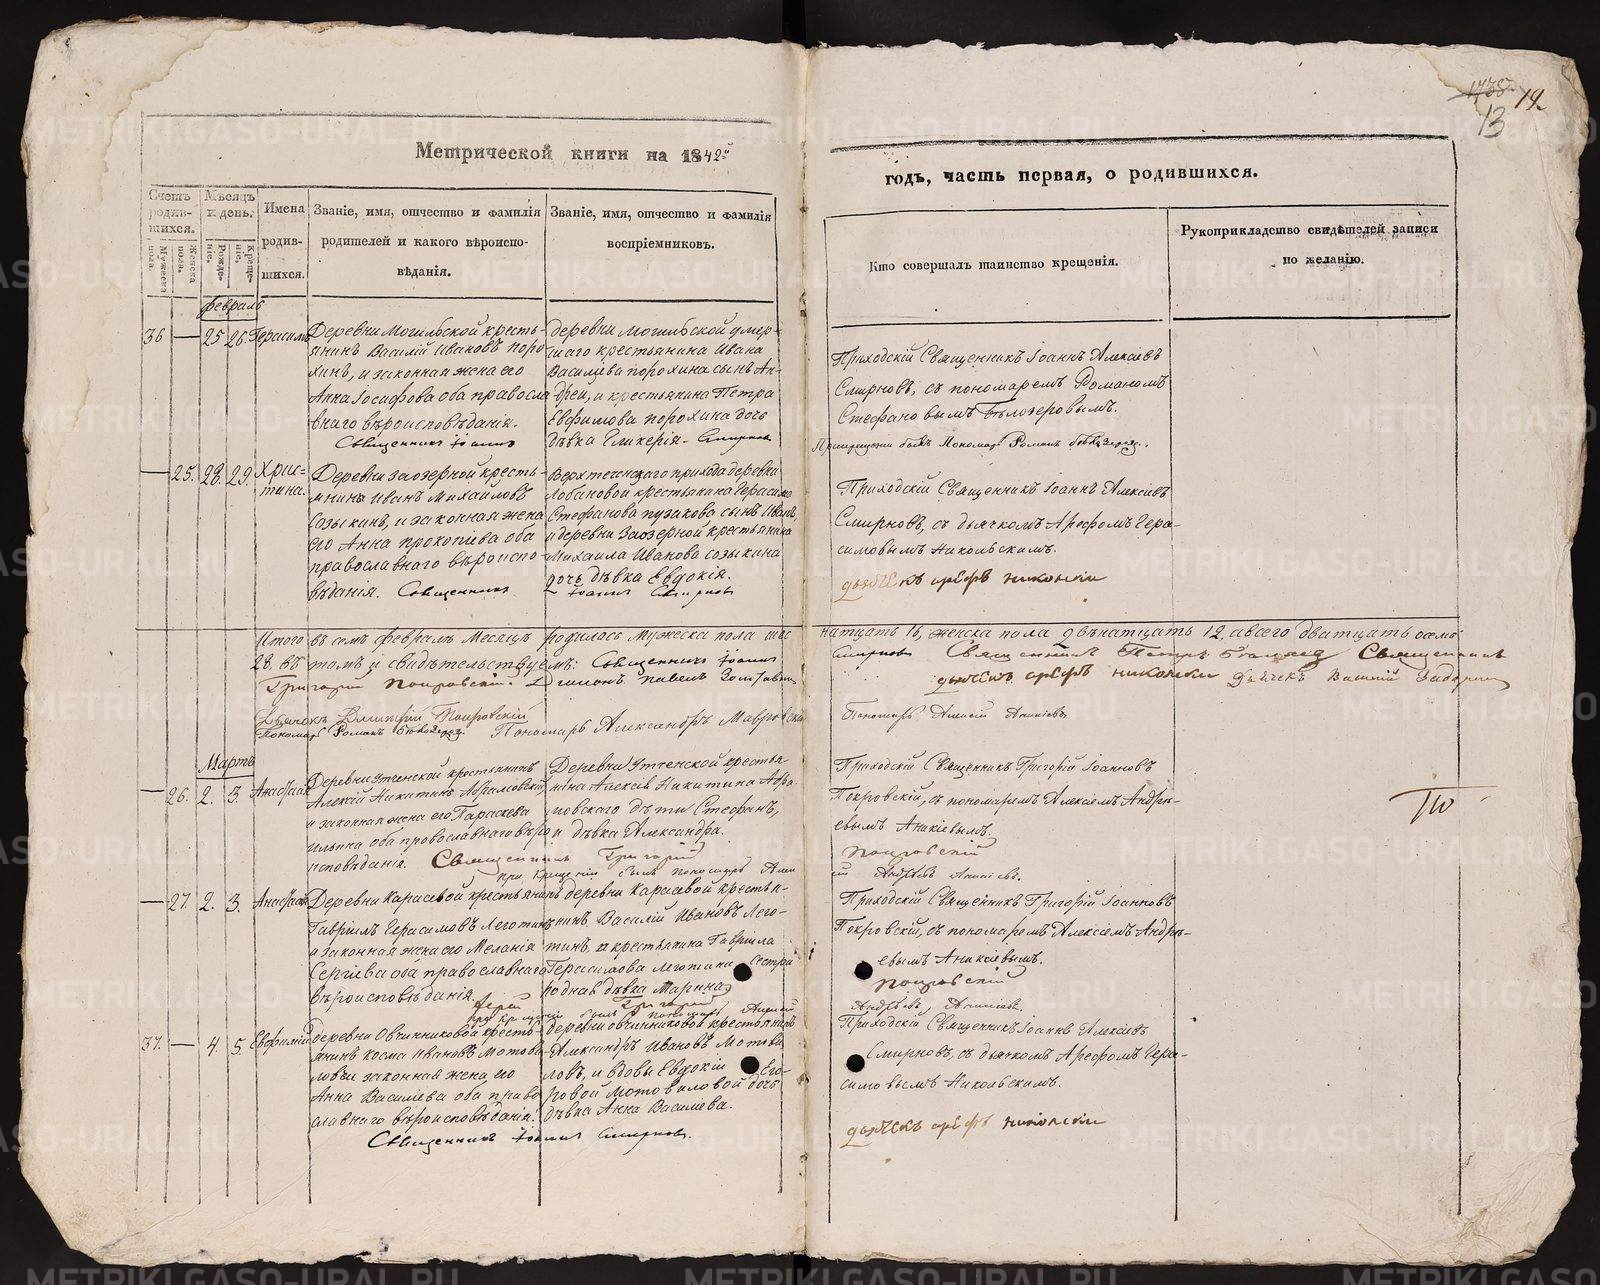 1738 19.
13
Метрической книги на 1842й
годъ, часть первая, о родившихся.
Счетъ родив-шихся.
Мужеска пола.
Женска пола.
Мѣсяцъ и день.
Рожде-нiе.
Креще-нiе.
Имена родив-шихся.
Званiе, имя, отчество и фамилiя
родителей и какого вѣроиспо-
вѣданiя.
Званiе, имя, отчество и фамилiя
воспрiемниковъ.
Кто совершалъ таинство крещенiя.
Рукоприкладство свидѣтелей записи
по желанiю.
февраль
36 — 25 26. Герасимъ
Деревни Могильской кресть-
янинъ Василiй Ивановъ Поро-
хинъ, и законная жена его
Анна Iосифова оба правосла
внаго вѣроисповѣданiя.
Священникъ Iоаннъ
деревни Могильской умер-
шаго крестьянина Ивана
Васильева порохина сынъ Ан-
дрей, и крестьянина Петра
Евфимова порохина дочь
дѣвка Гликерiя. Смирновъ
Приходскiй Священникъ Iоаннъ Алексiевъ
Смирновъ, съ пономаремъ Романомъ
Стефановымъ Бѣлозеровымъ.
При крещенiи былъ Пономарь Романъ Бѣлозеровъ.
— 25. 28. 29. Хрис=
тина.
Деревни заозерной кресть-
янинъ Иванъ Михайловъ
Созыкинъ, и законная жена
его Анна прокопiева оба
православнаго вѣроиспо-
вѣданiя. Священникъ
Верхтеченскаго прихода деревни
Лобановой крестьянина Герасима
Стефанова пузакова сынъ Иванъ,
и деревни Заозерной крестьянина
Михаила Иванова созыкина
дочь дѣвка Евдокiя.
Iоаннъ Смирновъ
Приходскiй Священникъ Iоаннъ Алексiевъ
Смирновъ, съ дьячкомъ Арефомъ Гера-
симовымъ Никольскимъ.
дьячекъ арефъ никольскiи
Итого въ семъ февралѣ Месяцѣ родилось мужеска пола шес
натцать 16, женска пола двѣнатцать 12. а всего дватцать осемь
28. въ томъ и свидѣтельствуемъ: Священникъ Iоаннъ
Смирновъ Священникъ Петръ Священникъ
Григорiй Покровскiй. Дiаконъ павелъ
дьячекъ арефъ никольскiи Дьячекъ Василiй
Дьячекъ Дмитрiй Покровскiй
Пономарь Романъ Бѣлозеровъ. Пономарь Александръ
Пономарь Алексiй Аникiевъ
Мартъ
— 26. 2. 3. Анастасiя
Деревни Утченской крестьянинъ
Алексiй Никитинъ Абрамовскiй
и законная жена его Параскева
Ильина оба православнаго вѣро
исповѣданiя. Священникъ Григорiй
Деревни Утченской крестья-
нина Алексiя Никитина Абра-
мовскаго дѣти Стефанъ,
и дѣвка Александра.
при крещенiи былъ пономарь Алек
Приходскiй Священникъ Григорiй Iоанновъ
Покровскiй, съ пономаремъ Алексiемъ Андрѣ-
евымъ Аникiевымъ.
Покровскiй
сiй Андрѣевъ Аникiевъ.
— 27 2. 3. Анастасiя
Деревни Карасевой крестьянинъ
Гаврiилъ Герасимовъ Леготинъ
и законная жена его Меланiя
Сергiева оба православнаго
вѣроисповѣданiя.
деревни Карасевой крестья-
нинъ Василiй Ивановъ Лего-
тинъ, и крестьянина Гаврiила
Герасимова леготина сестра
родная дѣвка Марина,
Iерей Григорiй
при крещенiи былъ пономарь Алексiй
Приходскiй Священникъ Григорiй Iоанновъ
Покровскiй, съ пономаремъ Алексiемъ Андрѣ-
евымъ Аникiевымъ.
Покровскiй
Андрѣевъ, Аникiевъ.
37. — 4. 5. Евфимiй
деревни Овчинниковой кресть-
янинъ Косма Ивановъ Мотови-
ловъ и законная жена его
Анна Василiева оба право
славнаго вѣроисповѣданiя.
Священникъ Iоаннъ Смирновъ.
деревни овчинниковой крестьянинъ
Александръ Ивановъ Мотови
ловъ, и вдовы Евдокiи Его-
ровой Мотовиловой дочь
дѣвка Анна Василiева.
Приходскiй Священникъ Iоаннъ Алексiевъ
Смирновъ, съ дьячкомъ Арефомъ Гера-
симовымъ Никольскимъ.
дьячекъ арефъ никольскiи
METRIKI.GASO-URAL.RU